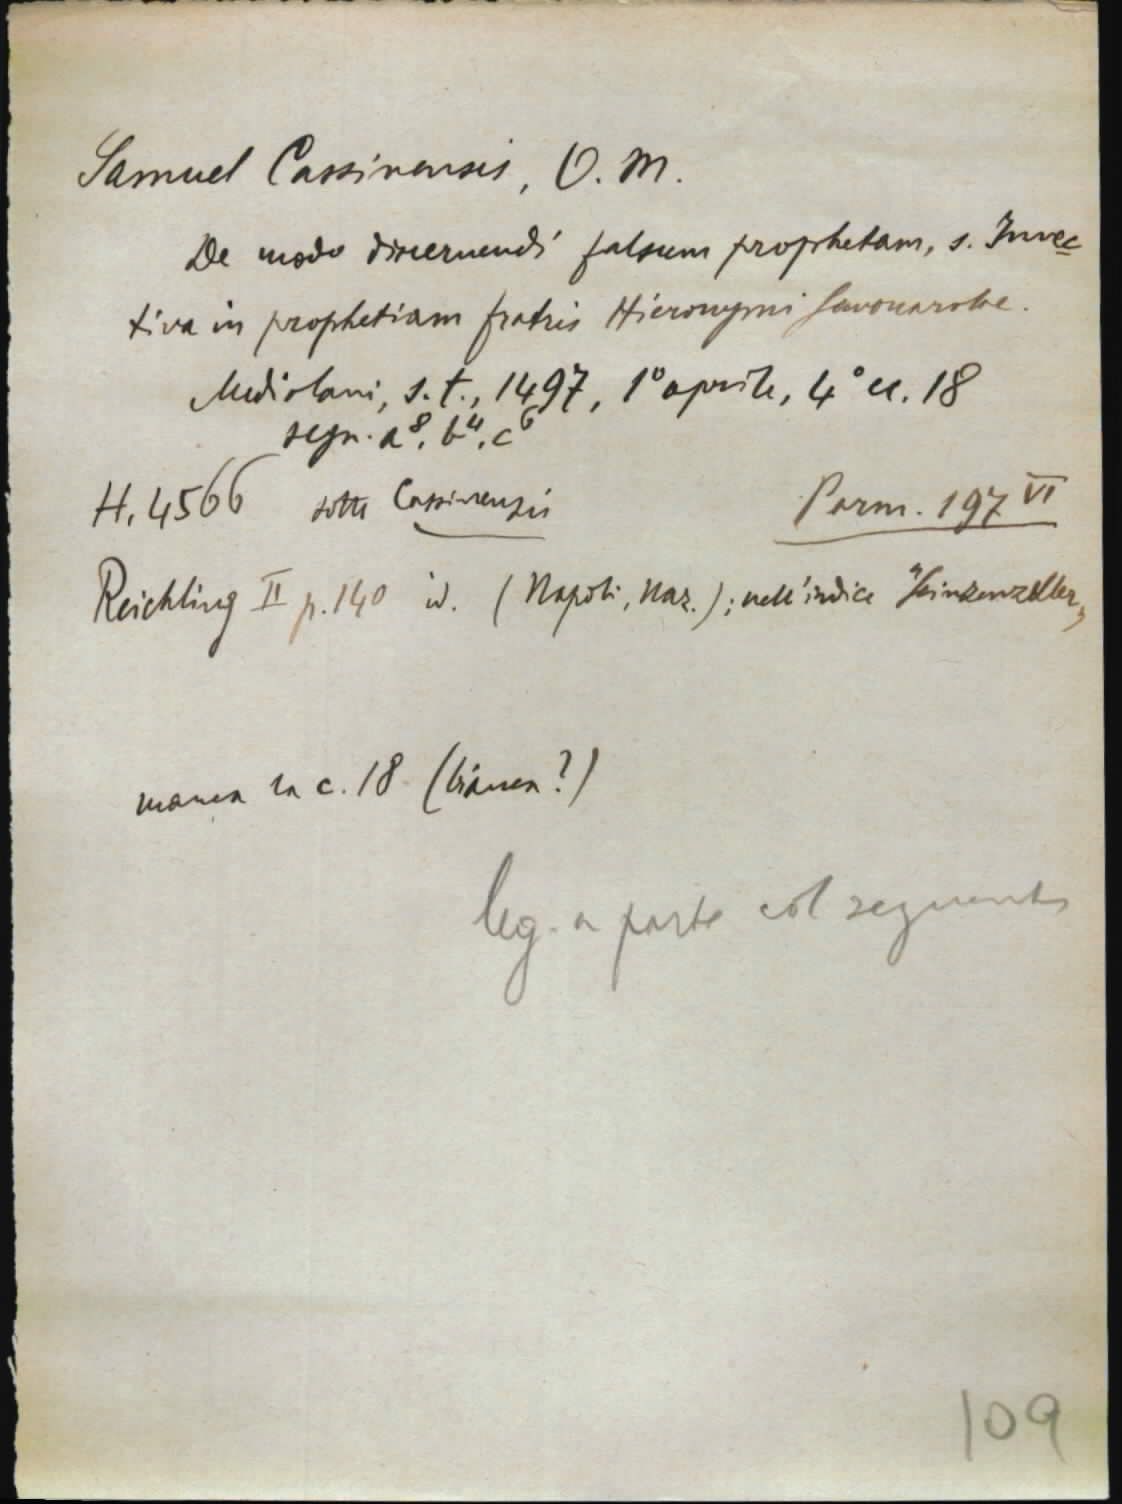 Samuel Cassinensis, O. M.
De modo discernendi falsum prophetam, s. Invec
tiva in prophetiam fratris Hieronymi Savonarolae.
Mediolani, s. t., 1497, 1° aprile, 4° cc. 18
segn. a⁸. b⁴. c⁶
H. 4566 sotto Cassinensis Parm. 197 VI
Reichling II p. 140 id. (Napoli, Naz.); nell'indice "Scinzenzeller"
manca la c. 18 (bianca?)
leg. a parte col seguente
109